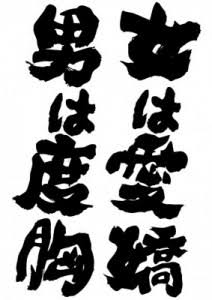 女は愛嬌
男は度胸